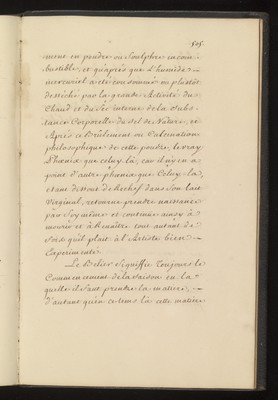 505.
ment en poudre ou Soulphre incom-
bustible, et quaprés que l'humide
mercuriel a eté consommé ou plûtôt
desséché par la grande Activité du
Chaud et du Sec interne de la subs-
tance Corporelle du Sel de Nature, et
Aprés ce Brulement ou Calcination
philosophique de cette poudre, le vray
Phœnix que celuy là, car il n'y en a
point d'autre phœnix que Celuy-là,
etant dessous de Rechef dans son lait
Virginal, retourne prendre naissance
par Soy même et continue ainsy à
mourir et à Renaître tout autant de
fois qu'il plaît à l'Artiste bien
Experimenté.
Le Belier Signiffie Toujours le
Commencement de la Saison en la
quelle il faut prendre la matiere,
d'autant qu'en ce tems là cette matiere